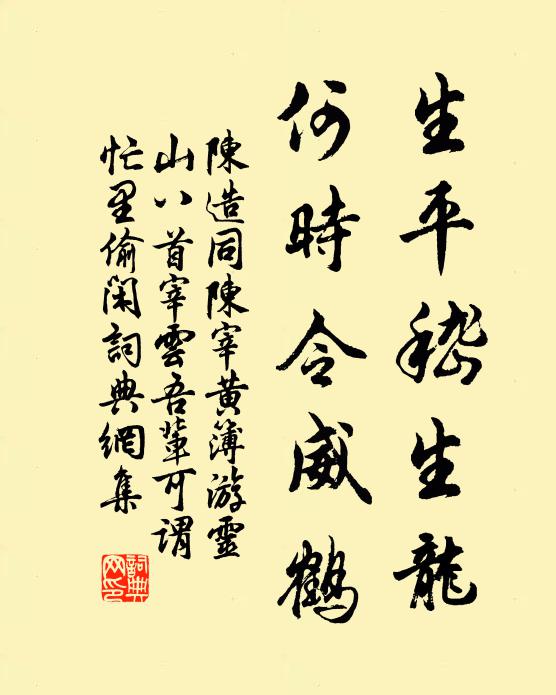 生平嵇生龍
何時令威鶴
陳造同陳宰黃簿游靈
山八首宰雲吾輩可謂
忙里偷閑詞典網集
詞典
網印